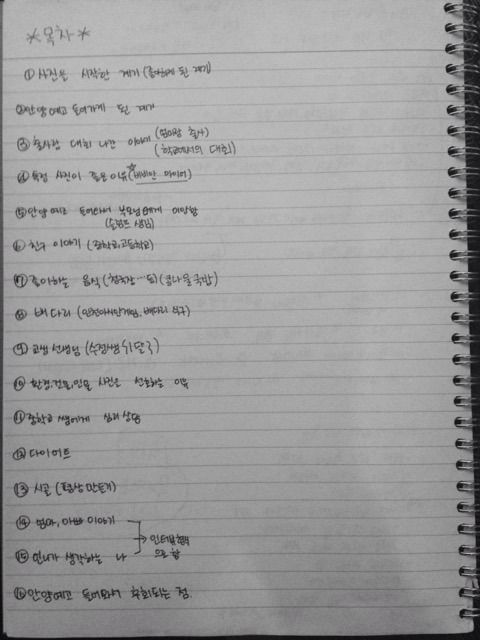 *목차*
① 사진을 시작한 계기 (좋아하게 된 계기)
② 안양예고 들어가게 된 계기
③ 출사랑 대회 나간 이야기 (엄마랑 출사)
(학교에서의 대회)
④ 특정 사진이 좋은 이유 (☆비비안 마이어)
⑤ 안양예고 들어와서 부모님에게 미안함
(슬럼프 생김)
⑥ 친구 이야기 (중학교, 고등학교)
⑦ 좋아하는 음식 (청국장…등) (콩나물국밥)
⑧ 배다리 (인천아시안게임, 배다리 축구)
⑨ 고쌤 선생님 (수정쌤
⑩ 환경, 건물, 인물 사진을 선호하는 이유
⑪ 중학교 쌤에게 심리상담
⑫ 다이어트
⑬ 시골 (영상만들기)
⑭ 엄마, 아빠 이야기
→ 인터뷰형식
⑮ 언니가 생각하는 나
으로 함
⑯ 안양예고 들어와서 후회되는 점